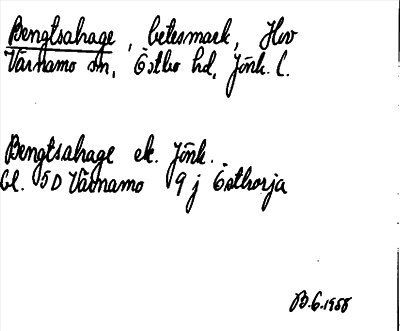 Bengtsahage, betesmark, Hov
Värnamo sn, Östbo hd, Jönk. l.
Bengtsahage ek. Jönk.
bl. 5D Värnamo 9 j Östhorja
B.G.1988